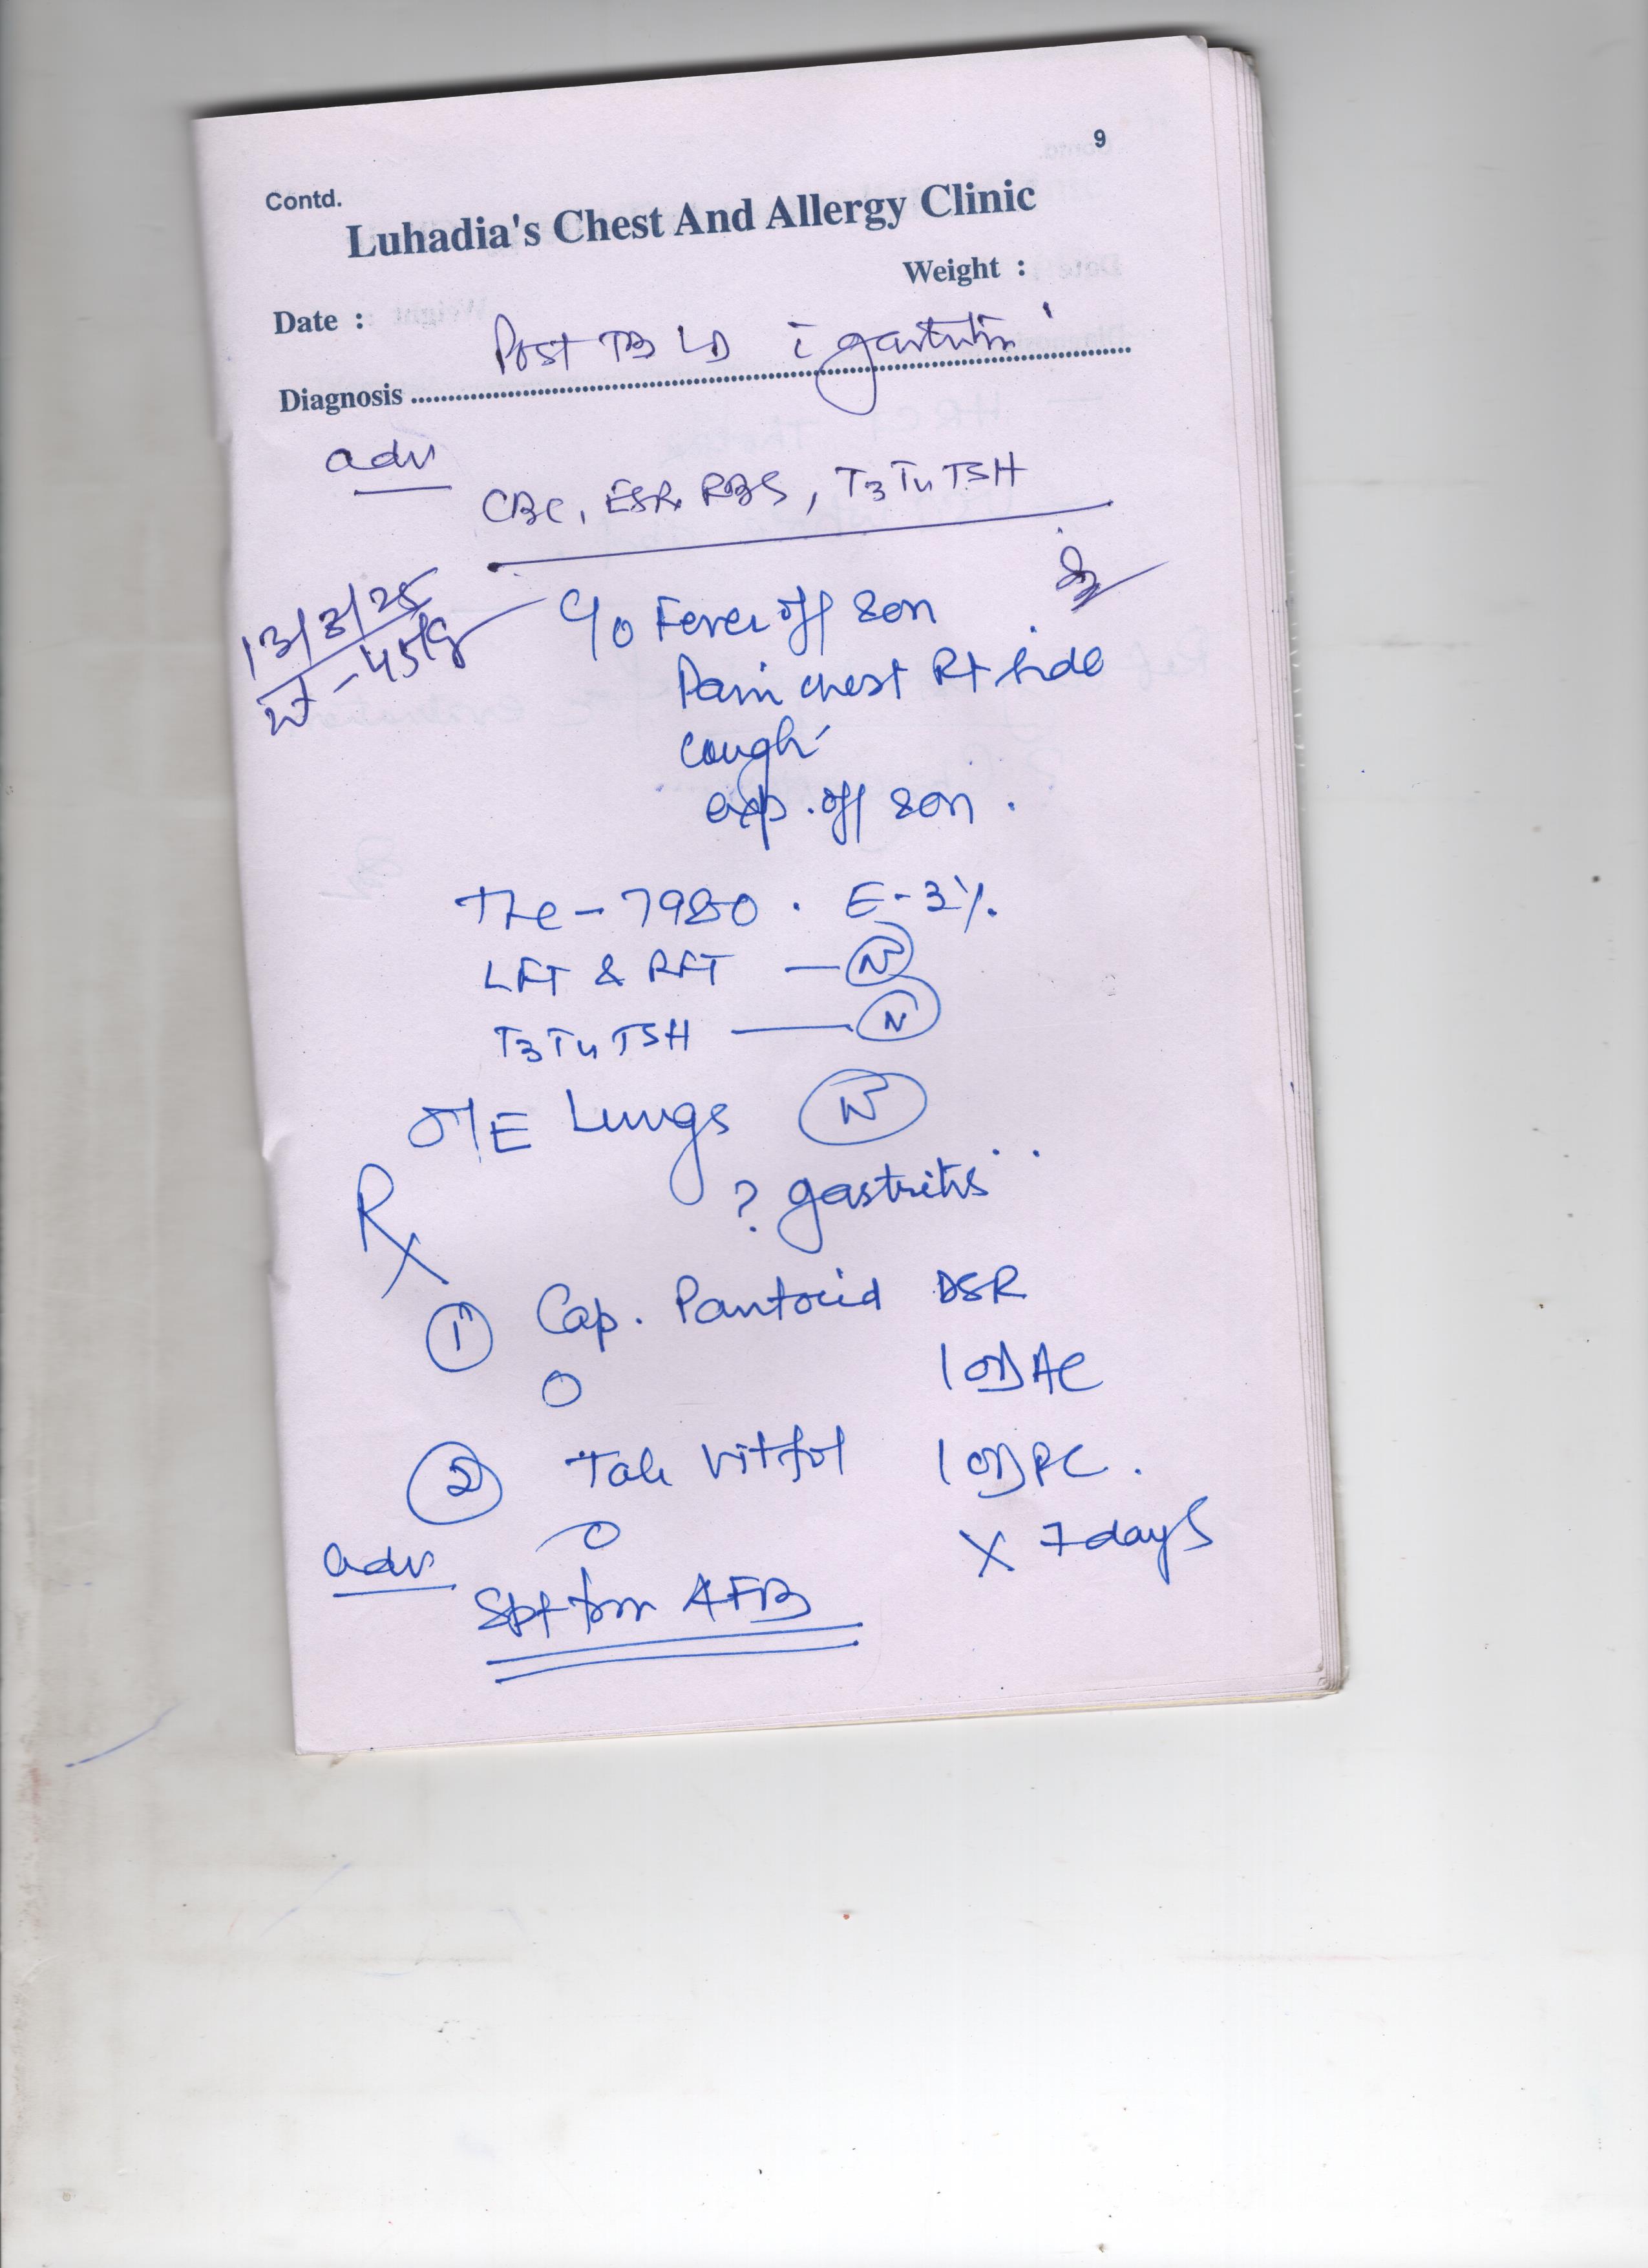 9
Contd.
Luhadia's Chest And Allergy Clinic
Weight :
Date :
Post TB LD c̄ gastritis
Diagnosis
adv
CBC, ESR, RBS, T3 T4 TSH
13/3/25
wt - 45kg
C/o Fever off & on
Pain chest Rt side
cough
exp. off & on.
TLC - 7980. E-3%.
LFT & RFT — N
T3 T4 TSH — N
O/E Lungs N
? gastritis
Rx
1 Cap. Pantocid DSR
1 OD AC
2 Tab Vitfol 1 OD PC.
x 7 days
adv
Sputum AFB